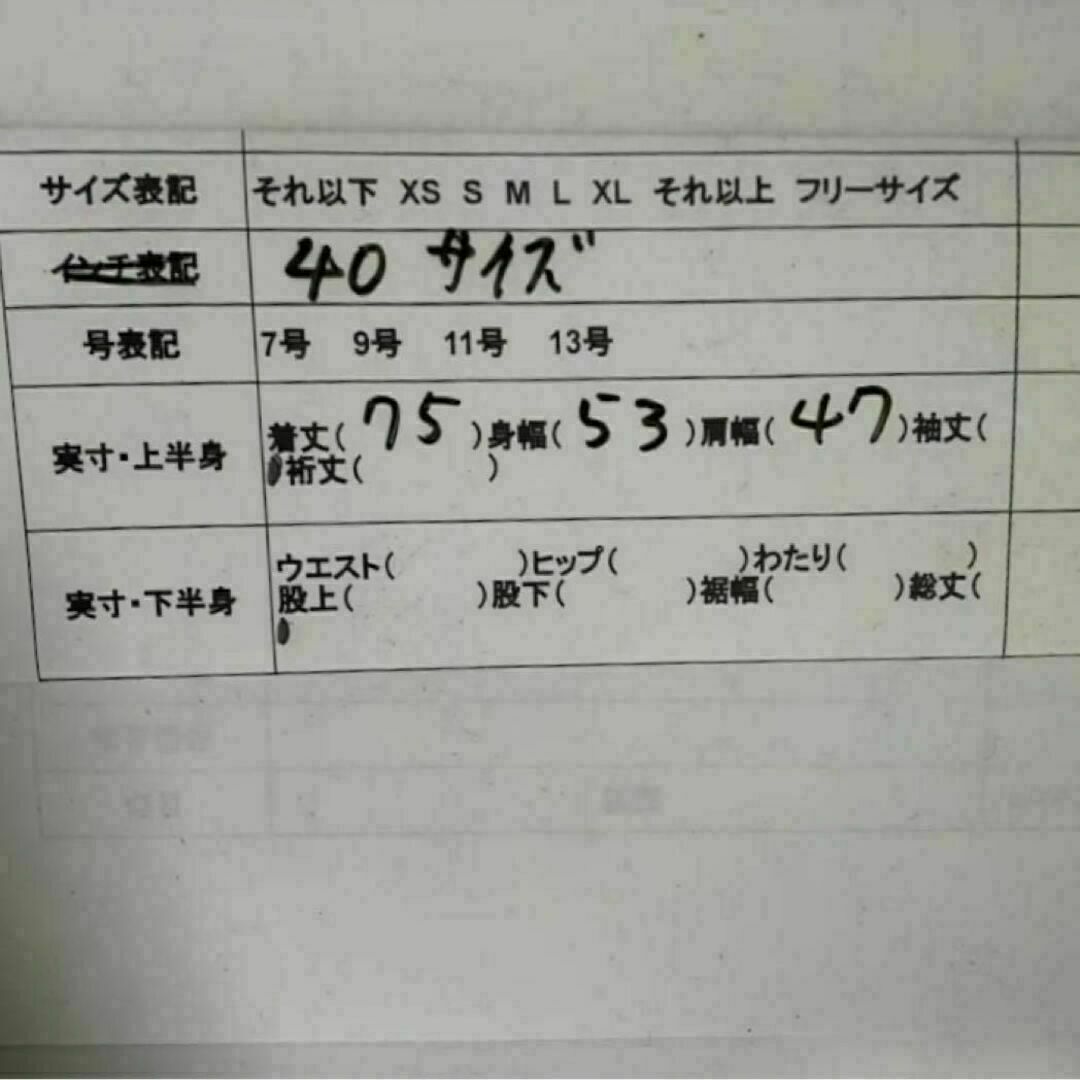 サイズ表記 それ以下 XS S M L XL それ以上 フリーサイズ
インチ表記 40 サイズ
号表記 7号 9号 11号 13号
実寸・上半身 着丈( 75 )身幅( 53 )肩幅( 47 )袖丈(
)裄丈( )
実寸・下半身 ウエスト( )ヒップ( )わたり( )
股上( )股下( )裾幅( )総丈(
)